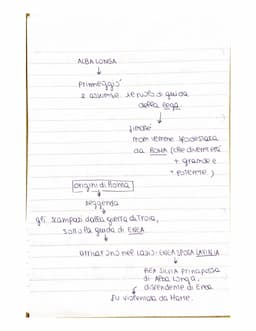 ALBA LONGA
primeggiò
e assunse il ruolo di guida
della lega
finché
non venne spodestata
da ROMA (che diventerà
+ grande e
+ potente)
origini di Roma
leggenda
gli scampati dalla guerra di Troia,
sotto la guida di ENEA
arrivarono nel Lazio: ENEA SPOSA LAVINIA
REA SILVIA principessa
di Alba Longa,
discendente di Enea
fu violentata da Marte.